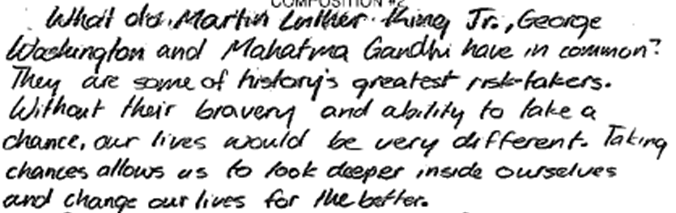 COMPOSITION #2
What do Martin Luther King Jr., George
Washington and Mahatma Gandhi have in common?
They are some of history's greatest risk-takers.
Without their bravery and ability to take a
chance, our lives would be very different. Taking
chances allows us to look deeper inside ourselves
and change our lives for the better.